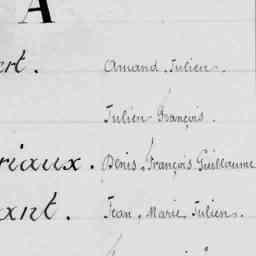 A
ert. Amand Julien.
Julien François.
riaux. Denis, François Guillaume
ant. Jean, Marie Julien.